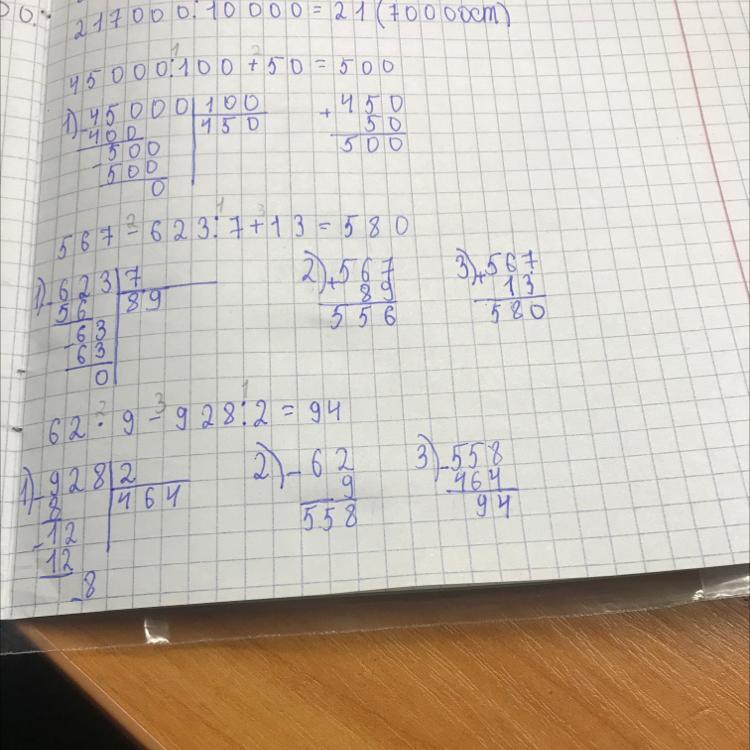 217000:10000=21(70000ст)
45000:100+50=500
1) 45000 | 100
- 400 | 450
- 500
500
0
+ 450
50
500
567-623:7+13=580
1) - 623 | 7
56 | 89
- 63
63
0
2) + 567
89
556
3) + 567
13
580
62·9-928:2=94
1) - 928 | 2
8 | 464
- 12
12
- 8
2) - 62
9
558
3) - 558
464
94